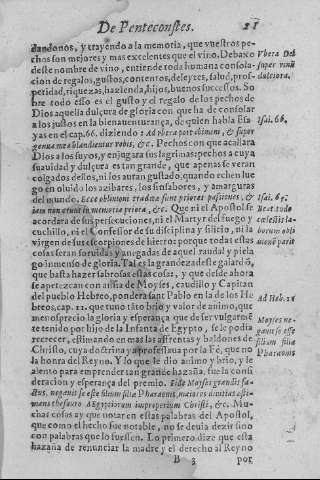 De Pentecostes. 21
dandonos, y trayendo a la memoria, que vuestros pe-
chos son mejores y mas excelentes que el vino. Debaxo
deste nombre de vino, entiende toda humana consola-
cion de regalos, gustos, contentos, deleytes, salud, pros-
peridad, riquezas, hazienda, hijos, buenos successos. So
bre todo esso es el gusto y el regalo de los pechos de
Dios aquella dulçura de gloria con que ha de consolar
a los justos en la bienauenturança, de quien habla Esa
yas en el cap. 66. diziendo: Ad vbera portabimini, & super
genua mea blandientur vobis, &c. Pechos con que acallara
Dios a los suyos, y enjugara sus lagrimas: pechos a cuya
suauidad y dulçura estan
colgados dellos, ni los auran gustado, quando echen lue
go en oluido los azibares, los sinsabores, y amarguras
del mundo. Ecce obliuioni traditæ sunt priores
non erunt in memoria priora, &c. Que ni el Apostol se
acordara de sus persecuciones, ni el Martyr del fuego y
cuchillo, ni el Confessor de su disciplina y silicio, ni la
virgen de sus escorpiones de hierro: porque todas estas
cosas seran soruidas y anegadas de aquel raudal y piela
go inmenso de gloria. Tal es la grandeza deste galardõ,
que basta hazer sabrosas estas cosas, y que desde ahora
se apetezcan con ansia de Moyses, caudillo y Capitan
del pueblo Hebreo, pondera sant Pablo en la de los He
breos, cap. 11. que tuuo tãto brio y valor de animo, que
menosprecio la gloria y esperança que de ser vulgarmẽ
te tenido por hijo de la Infanta de Egypto, se le podia
recrecer, estimando en mas las affrentas y baldones de
Christo, cuya doctrina ya professaua por la Fè, que no
la honra del Reyno. Y lo que le dio animo y brio, y le
aliento para emprender tan grande hazaña, fue la consi
deracion y esperança del premio. Fide Moyses grandis fa-
ctus, negauit se esse filium filiæ Pharaonis, maiores diuitias esti-
mans thesauro Ægyptiorum improperium Christi, &c. Mu-
chas cosas ay que notar en estas palabras del Apostol,
que como el hecho fue notable, no se deuia dezir sino
con palabras que lo fuessen. Lo primero dize que esta
hazaña de renunciar la madre y el derecho al Reyno
B 3 por
Vbera Dei
super vinũ
dulciora.
Isai. 66.
Isai. 65.
Ad Heb. 11
Moyses ne-
gauit se esse
filium filiæ
Pharaonis